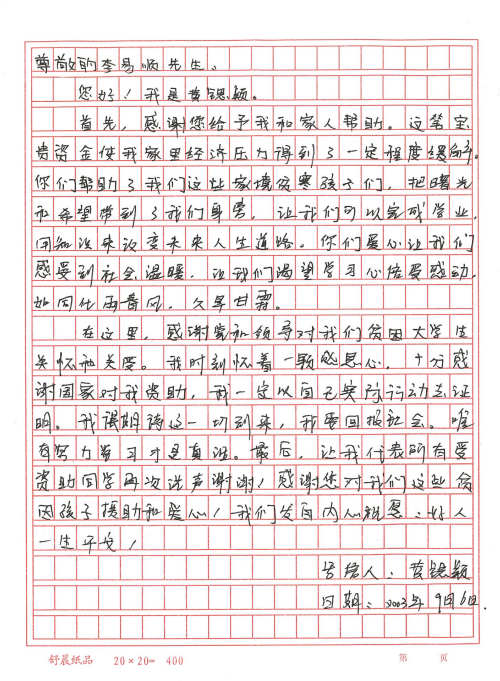 尊敬的李易炳先生、
您好！我是黄锶颖。
首先，感谢您给予我和家人帮助。这笔宝
贵资金使我家里经济压力得到了一定程度缓解。
你们帮助了我们这些家境贫寒孩子们，把曙光
和希望带到了我们身旁，让我们可以完成学业，
用知识来改变未来人生道路。你们爱心让我们
感受到社会温暖，让我们渴望学习心倍受感动，
如同化雨春风，久旱甘霖。
在这里，感谢党和领导对我们贫困大学生
关怀和关爱。我时刻怀着一颗感恩心，十分感
谢国家对我资助，我一定以自己实际行动去证
明。我很期待这一切到来，我要回报社会。唯
有努力学习才是真谛。最后，让我代表所有受
资助同学再次说声谢谢！感谢您对我们这些贫
困孩子援助和爱心！我们发自内心祝愿：好人
一生平安！
黄锶颖
日期：2023年9月6日.
舒晨纸品 20×20=400 第 页